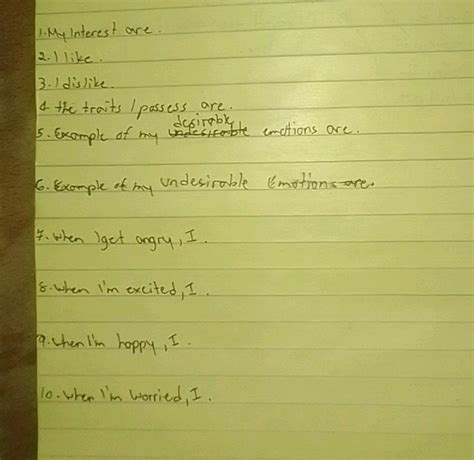 1. My Interest are.
2. I like.
3. I dislike.
4 the traits I possess are.
desirable
5. Example of my undesirable emotions are.
6. Example of my undesirable Emotions are.
7. when I get angry, I.
8. when I'm excited, I.
9. when I'm happy, I.
10. when I'm worried, I.